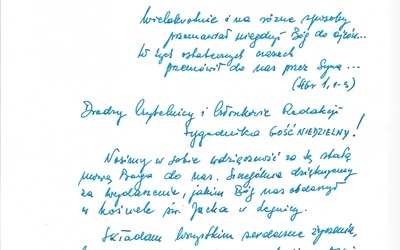 Wielokrotnie i na różne sposoby
przemawiał niegdyś Bóg do ojców...
W tych ostatecznych czasach
przemówił do nas przez Syna...
(Hbr 1, 1-2)
Drodzy Czytelnicy i Członkowie Redakcji
tygodnika GOŚĆ NIEDZIELNY!
Nosimy w sobie wdzięczność za tę stałą
mowę Boga do nas. Szczególnie dziękujemy
za wydarzenie, jakim Bóg nas obdarzył
w kościele św. Jacka w Legnicy.
Składam wszystkim serdeczne życzenia,